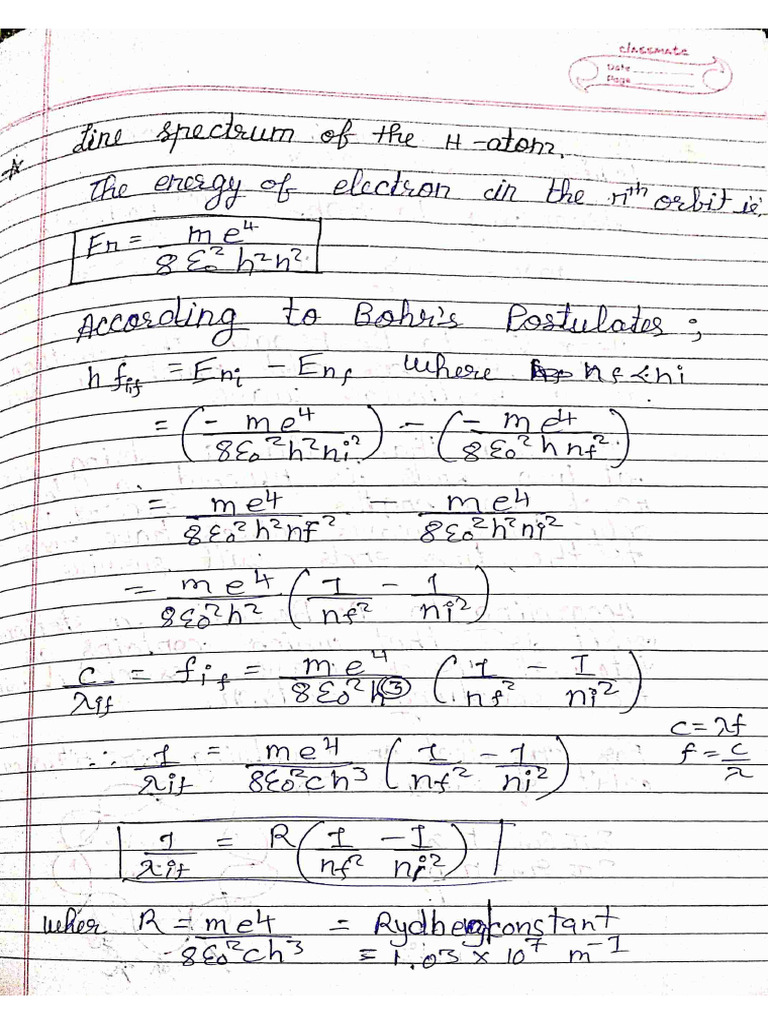 classmate
Date
Page
Line spectrum of the H-atom.
The energy of electron in the nth orbit is,
En = me⁴ / 8ε₀²h²n²
According to Bohr's Postulates;
h f_if = En_i − En_f where n_f < n_i
= (− me⁴ / 8ε₀²h²n_i²) − (− me⁴ / 8ε₀²h n_f²)
= me⁴ / 8ε₀²h²n_f² − me⁴ / 8ε₀²h²n_i²
= me⁴ / 8ε₀²h² (1/n_f² − 1/n_i²)
c/λ_if = f_if = me⁴ / 8ε₀²h³ (1/n_f² − 1/n_i²)
c = λf
f = c/λ
∴ 1/λ_if = me⁴ / 8ε₀²ch³ (1/n_f² − 1/n_i²)
1/λ_if = R(1/n_f² − 1/n_i²)
wher R = me⁴ / 8ε₀²ch³ = Rydherg constant
= 1.03 × 10⁷ m⁻¹